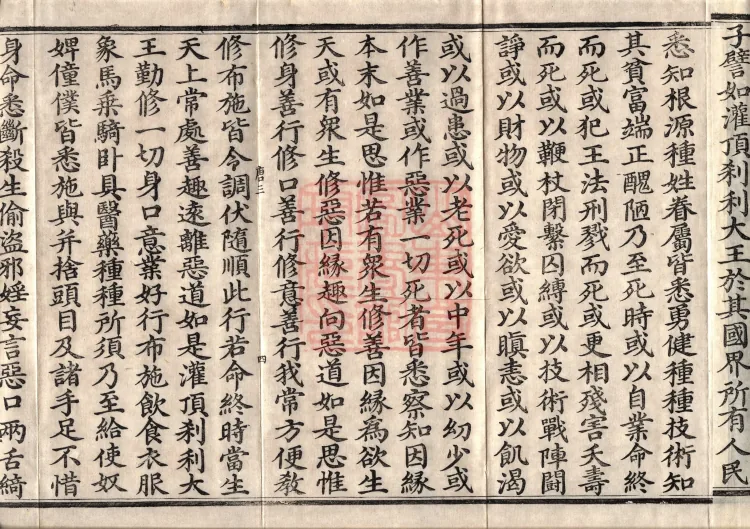 子譬如灌頂刹利大王於其國界所有人民
悉知根源種姓眷屬皆悉勇健種種技術知
其貧富端正醜陋乃至死時或以自業命終
而死或犯王法刑戮而死或更相殘害夭壽
而死或以鞭杖閉繫囚縛或以技術戰陣鬪
諍或以財物或以愛欲或以瞋恚或以飢渴
或以過患或以老死或以中年或以幼少或
作善業或作惡業一切死者皆悉察知因緣
本末如是思惟若有衆生修善因緣爲欲生
天或有衆生修惡因緣趣向惡道如是思惟
修身善行修口善行修意善行我常方便教
唐三
四
修布施皆令調伏隨順此行若命終時當生
天上常處善趣遠離惡道如是灌頂刹利大
王勤修一切身口意業好行布施飲食衣服
象馬乗騎卧具醫藥種種所須乃至給使奴
婢僮僕皆悉施與并捨頭目及諸手足不惜
身命悉斷殺生偷盜邪婬妄言惡口兩舌綺